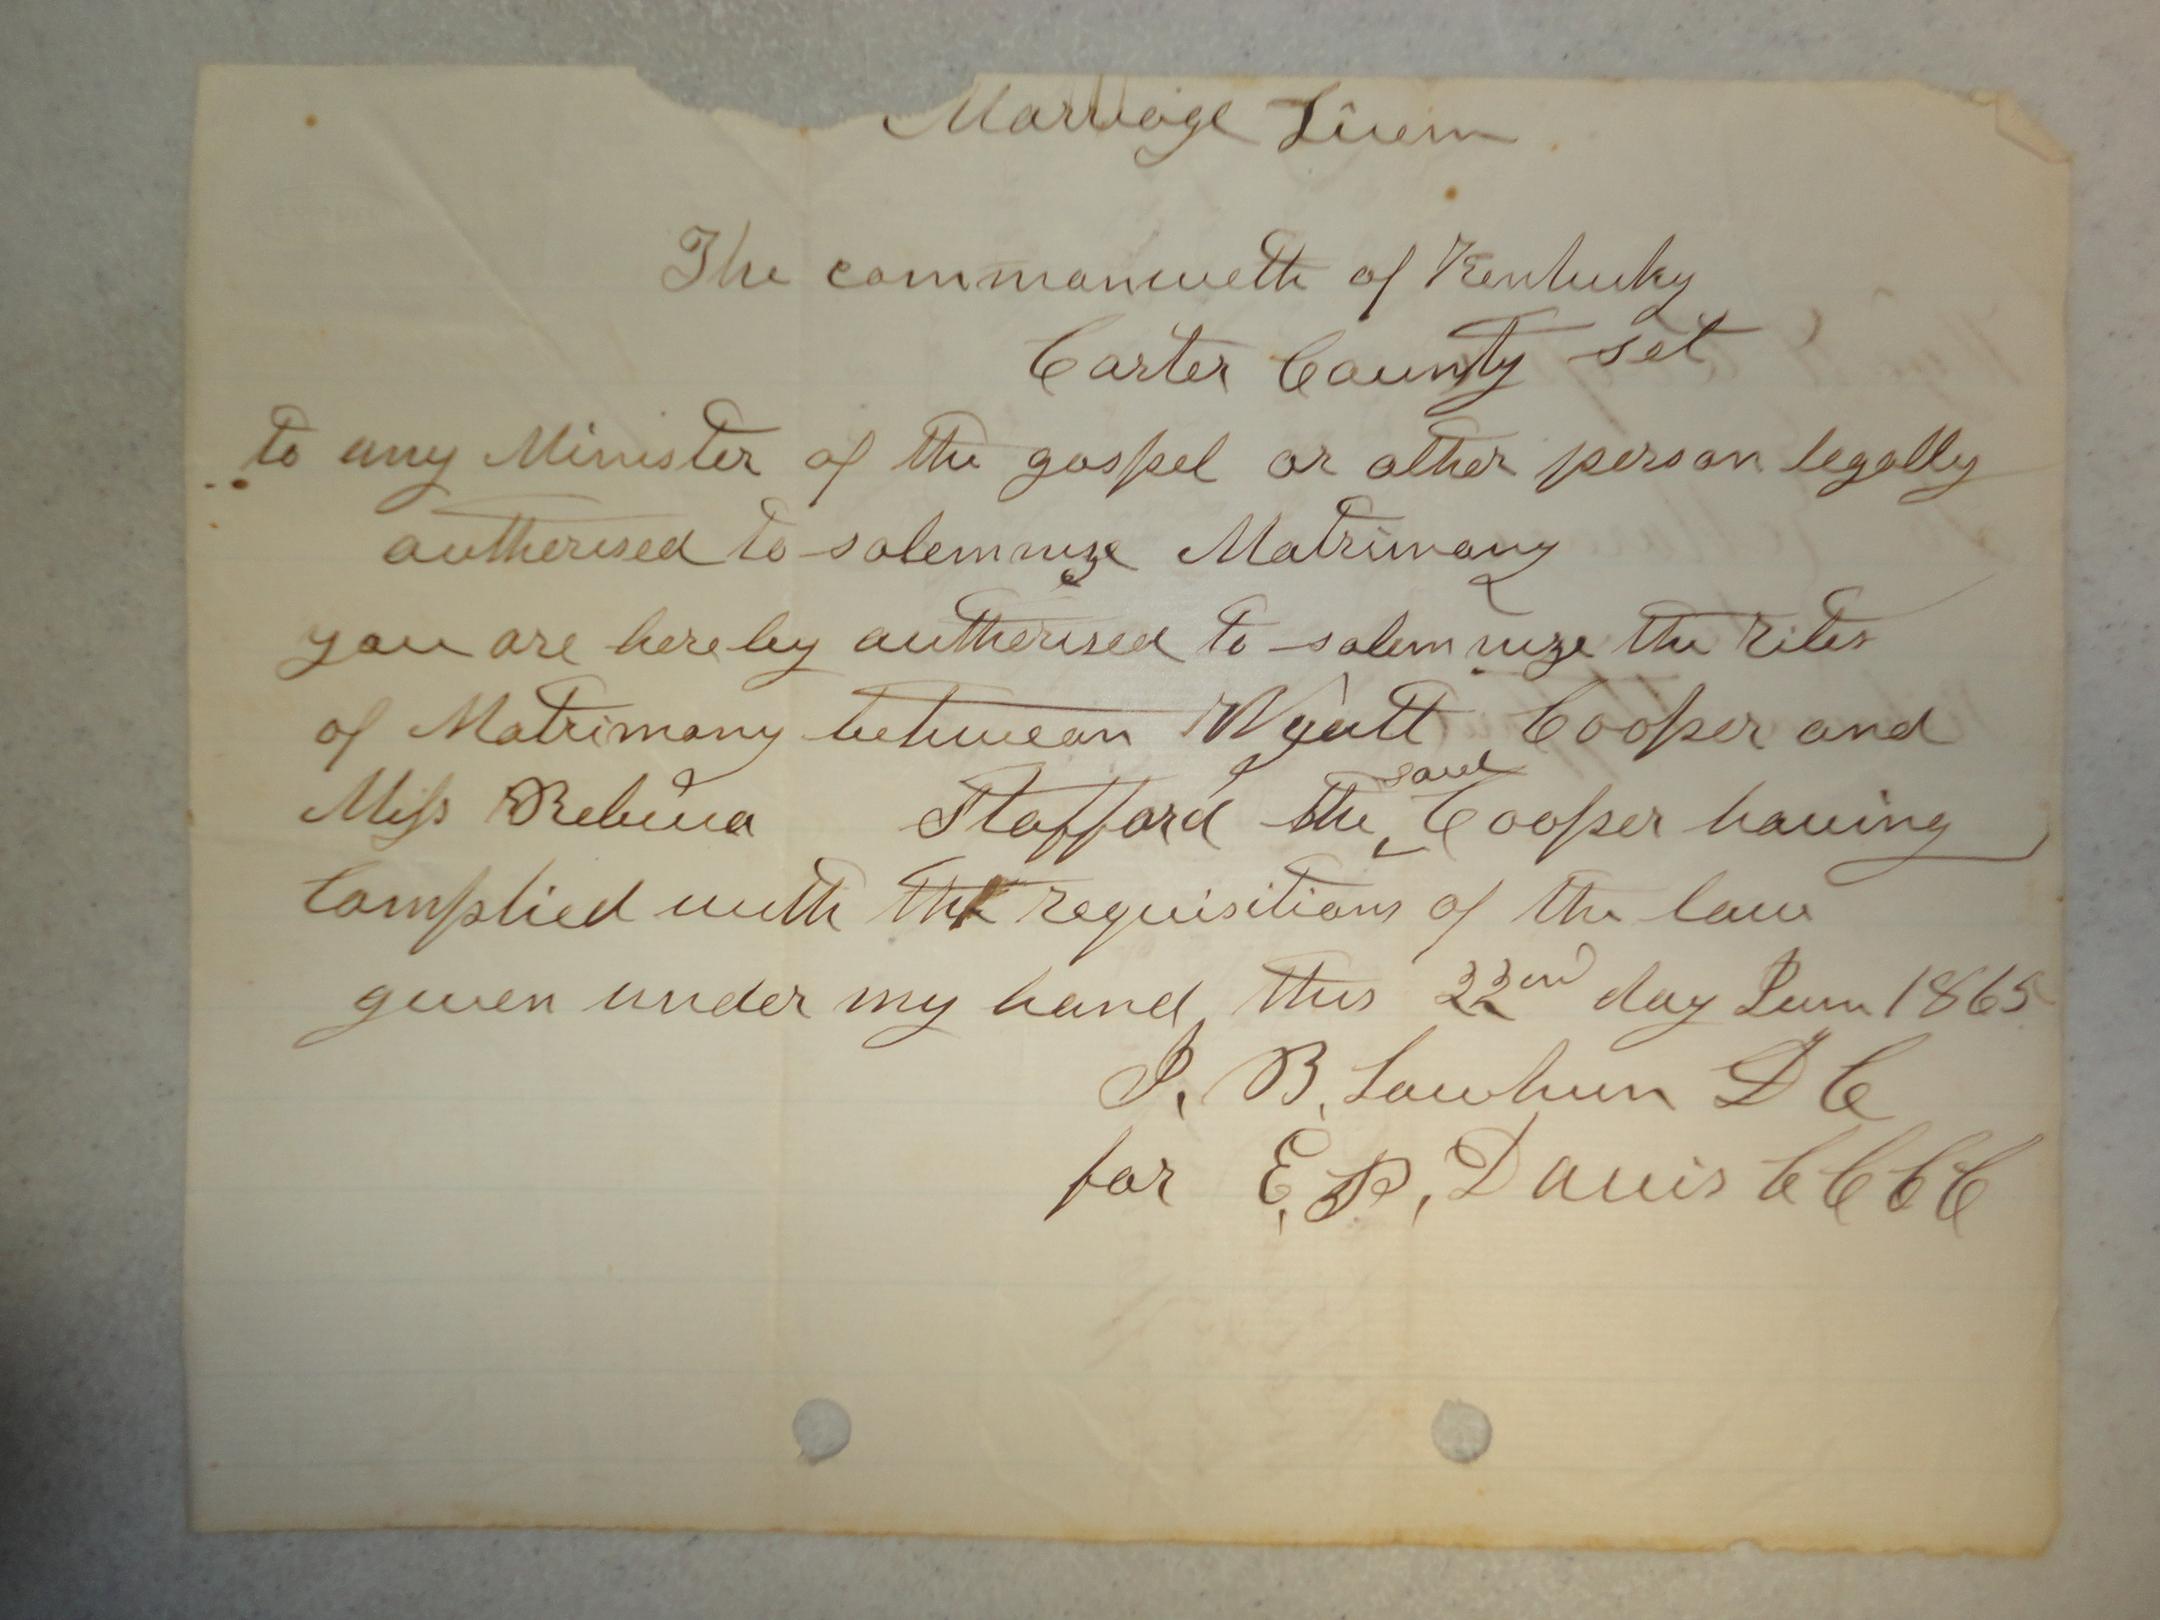 Marriage Licem
The commonweth of Kentucky
Carter County set
to any Minister of the gospel or other person legally
autherised to solemnize Matrimony
you are hereby autherised to solemnize the rites
of Matrimony between Wyatt Cooper and
Miss Rebecca Stafford the said Cooper having
Complied with the requisitions of the law
given under my hand this 22nd day June 1865
J. B. Lawhun D C
for E. P. Davis C C C C